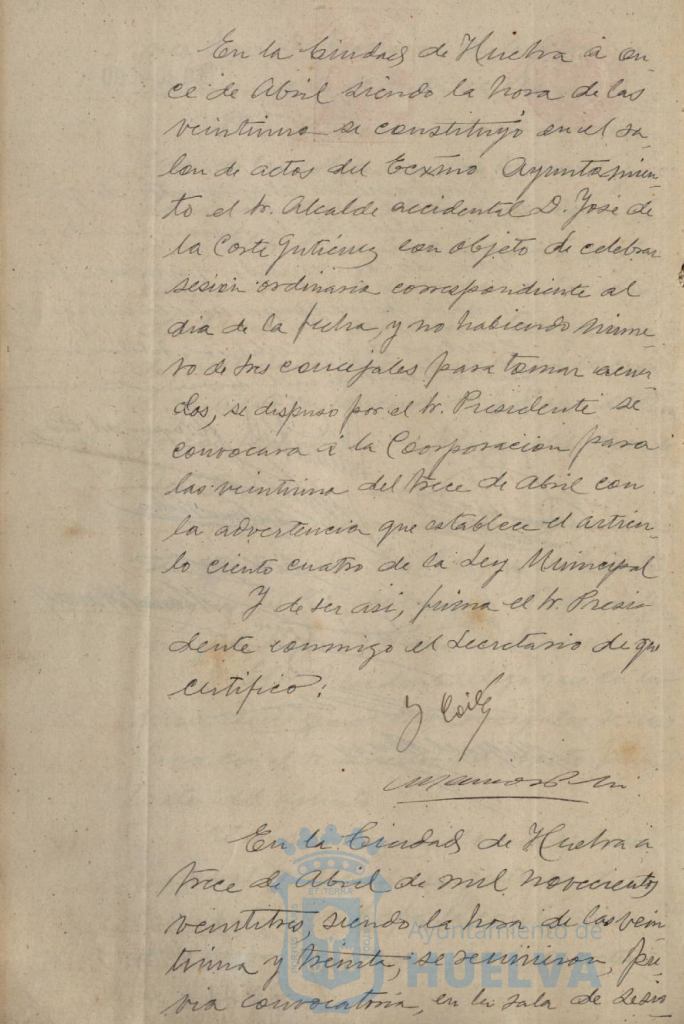 En la Ciudad de Huelva á on-
ce de Abril siendo la hora de las
veintiuna se constituyó en el sa-
lon de actos del Ecxmo Ayuntamien-
to el Sr. Alcalde accidental D. José de
la Corte Gutiérrez con objeto de celebrar
sesión ordinaria correspondiente al
dia de la fecha, y no habiendo núme-
ro de sres concejales para tomar acuer-
dos, se dispuso por el Sr. Presidente se
convocara á la Coorporación para
las veintiuna del trece de Abril con
la advertencia que establece el artícu-
lo ciento cuatro de la Ley Municipal
Y de ser asi, firma el Sr. Presi-
dente conmigo el Secretario de que
certifico:
En la Ciudad de Huelva a
trece de Abril de mil novecientos
veintitres, siendo la hora de las vein-
tiuna y treinta, se reunieron, pre-
via convocatoria, en la sala de sesio
Ayuntamiento de
HUELVA